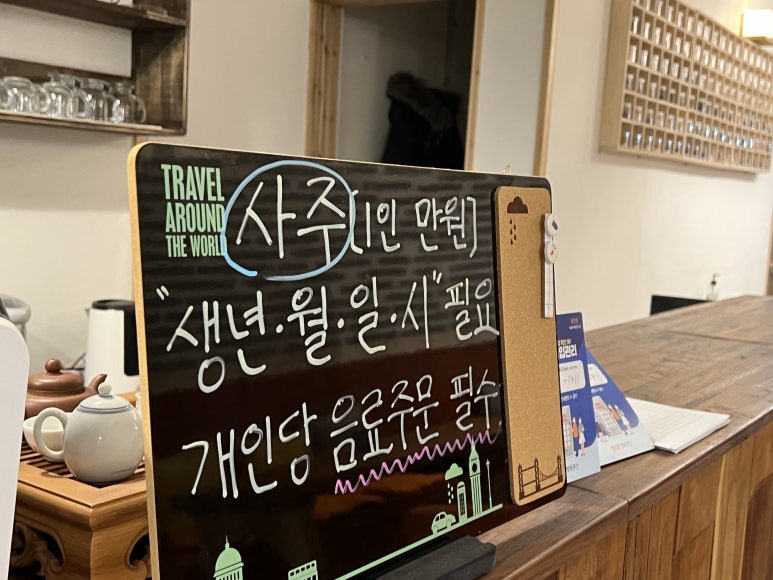 TRAVEL
AROUND
THE WORLD
사주 [1인 만원]
"생년·월·일·시" 필요
개인당 음료주문 필수